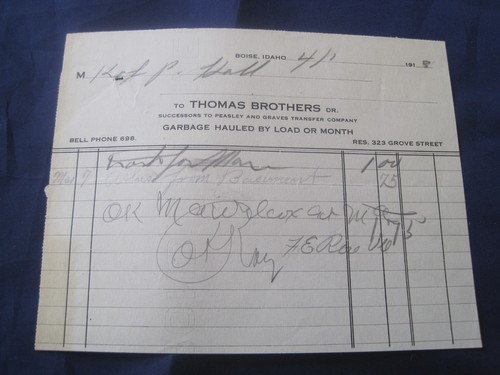 BOISE, IDAHO, 4/1 1918
M P. Hall
TO THOMAS BROTHERS DR.
SUCCESSORS TO PEASLEY AND GRAVES TRANSFER COMPANY
GARBAGE HAULED BY LOAD OR MONTH
BELL PHONE 698. RES. 323 GROVE STREET
for Mar 1 00
Mar 7 from Basement 75
OK 1.75
OK